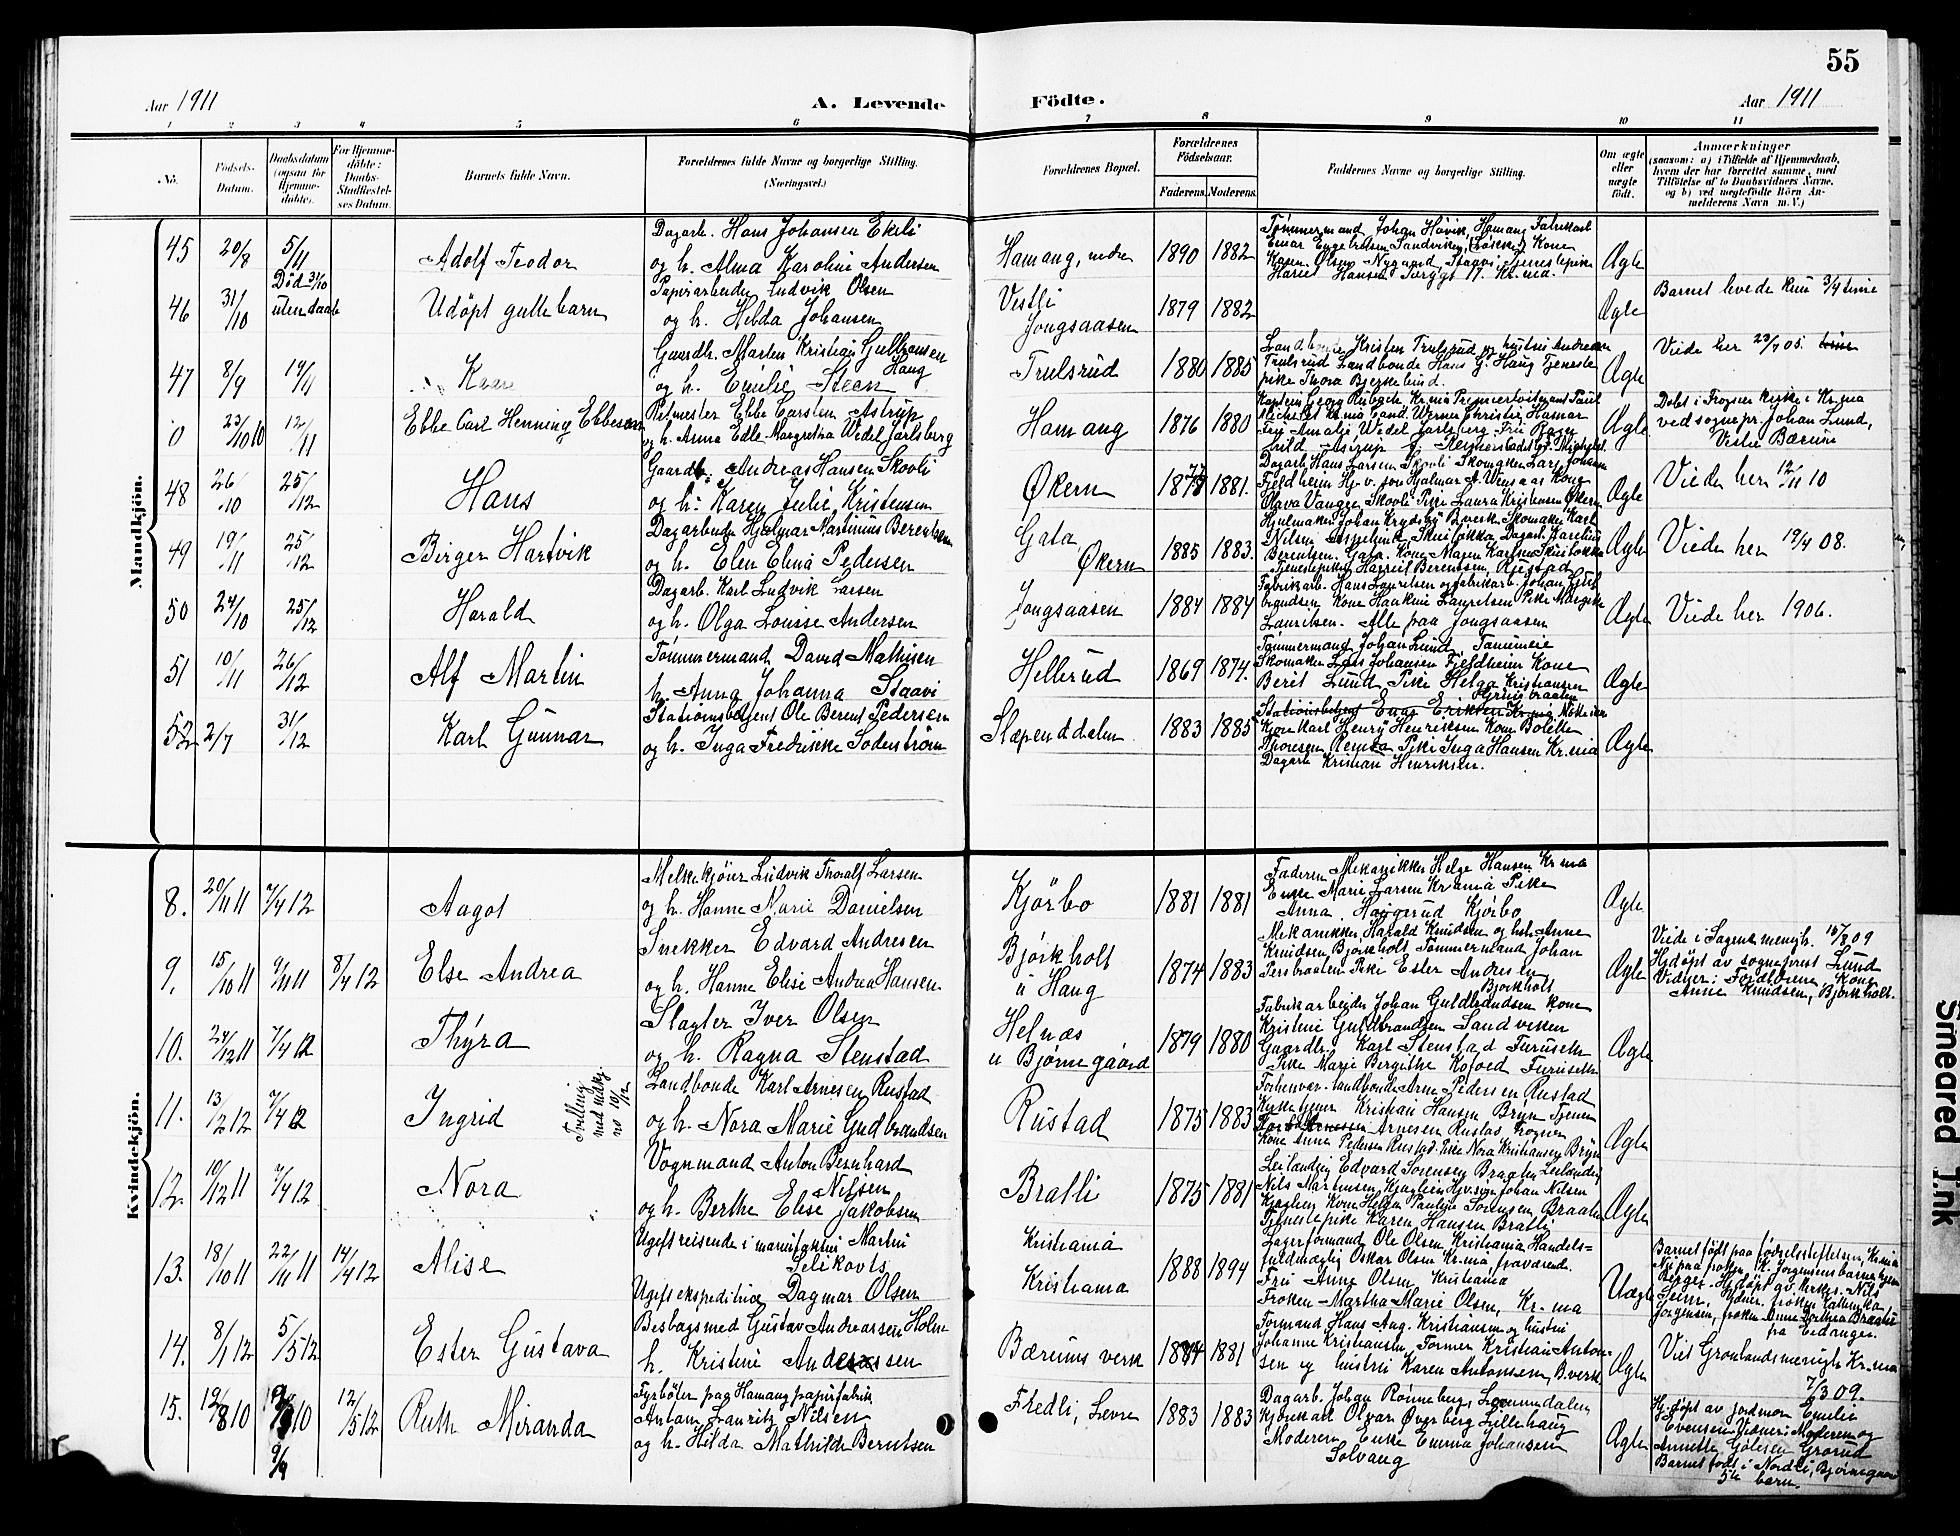 55
Aar 1911
A. Levende Födte.
Aar 1911
1 2 3 4 5 6 7 8 9 10 11
No.
Födsels-Datum.
Daabsdatum (ogsaa for Hjemmedöbte).
For Hjemmedöbte: Daabs-Stadfæstelses Datum.
Barnets fulde Navn.
Forældrenes fulde Navne og borgerlige Stilling. (Næringsvei.)
Forældrenes Bopæl.
Forældrenes Födselsaar.
Faderens. Moderens.
Faddernes Navne og borgerlige Stilling.
Om ægte eller uægte födt.
Anmærkninger
(saasom: a) i Tilfælde af Hjemmedaab, hvem der har forrettet samme, med Tilföielse af to Daabsvidners Navne, og b) ved uægtefödte Börn Anmelderens Navn m. V.)
Mandkjön.
45 20/8 5/11 Adolf Teodor
Dagarb. Hans Johansen Ekeli
og h. Alma Karoline Andersen
Hamang, nedre 1890 1882
Tømmermand Johan Høvik, Hamang Fabrikarb
Einar Engebretsen Sandviken, Kone
Karen Olsen Nygaard Staavi Tjenestepike
Ægte
46 31/10 Død 31/10 uten daab Udøpt guttebarn
Papirarbeider Ludvik Olsen
og h. Hilda Johansen
Vestli Jongsaasen 1879 1882 Ægte
Barnet levede kun 3/4 time
47 8/9 19/11 Kaare
Gaardb. Martin Kristian Gulbransen Haug
og h. Emilie Steen
Trulsrud 1880 1885
Landbonde Kristen Trulsrud og hustru Andrea
Trulsrud Landbonde Hans G. Haug Tjeneste
pike Thora Bjerkelund.
Ægte
Viede her 23/7 05.
0 23/10 10 12/11 Ebbe Carl Henning Ebbesen
Ritmester Ebbe Carsten Astrup
og h. Anna Edle Margretha Wedel Jarlsberg
Hamang 1876 1880
Kaptein Georg Rubach Kr.nia Premierløitnant Paul
Michelet Kr.nia Cand. Werner Christie Hamar
Frø Amalie Wedel Jarlsberg
Ægte
Døbt i Frogner kirke i Kr.nia
ved sognepr. Johan Lund,
Vestre Bærum
48 26/10 25/12 Hans
Gaardb. Andreas Hansen Skovli
og h. Karen Julie Kristensen
Økern 1877 1881.
Dagarb Hans Larsen Skovli Skomaker Lars Johansen
Fjeldheim
Olava Vangen Skovli Pike Laura Kristensen Økern
Ægte
Viede her 12/11 10
49 19/11 25/12 Birger Hartvik
Dagarbeider Hjalmar Martinius Berentsen
og h. Elen Elina Pedersen
Gata Økern 1885 1883.
Hjulmaker Johan Krydsby B.verk Skomaker Karl
Berentsen. Gata. Kone Maren Karlsen
Tjenestepiken Harriet Berentsen
Ægte
Viede her 19/4 08.
50 24/10 25/12 Harald
Dagarb. Karl Ludvik Larsen
og h. Olga Lovise Andersen
Jongsaasen 1884 1884
Fabrikarb. Hans Lauritsen og fabrikarb. Johan Gul
brandsen Kone Haakine Lauritsen Pike Margit
Lauritsen. Alle paa Jongsaasen
Ægte
Viede her 1906.
51 10/11 26/12 Alf Martin
Tømmermand David Mathisen
h. Anna Johanna Staavi
Hellerud 1869 1874.
Tømmermand Johan Lund, Tanumeie
Skomaker Lars Johansen Fjeldheim Kone
Berit Lund Pike Helga Kristiansen
Grinisbraaten
Ægte
52 2/7 31/12 Karl Gunnar
Stationsbetjent Ole Bernt Pedersen
og h. Inga Fredrikke Söderström
Slæpenddalen 1883 1885
Stationsbetjent Einar Eriksen Kr.nia
Karl Henry Henriksen Kone Bolette
Thoresen Pike Inga Hansen Kr.nia
Dagarb Kristian Henriksen.
Ægte
Kvindekjön.
8. 20/11 11 7/4 12 Aagot
Melkekjører Ludvik Thoralf Larsen
og h. Hanne Marie Danielsen
Kjørbo 1881 1881
Faderen Mekaniker Helge Hansen Kr.nia
Enke Marie Larsen Kr.ania Pike
Anna Haugerud Kjørbo
Ægte
9. 15/10 11 9/11 11 8/4 12 Else Andrea
Snekker Edvard Andresen
og h. Hanne Elise Andrea Hansen
Bjørkholt u Haug 1874 1883
Mekaniker Harald Knudsen og hst. Anne
Knudsen Bjørkholt Tømmermand Johan
Persbraaten Pike Ester Andresen
Bjørkholt
Ægte
Viede i Sagene menigh. 15/8 09
Hjdøpt av sogneprest Lund
Vidner: Forældrene Kone
Anne Knudsen, Bjørkholt.
10. 24/12 11 7/4 12 Thyra
Slagter Iver Olsen
og h. Ragna Stenstad
Helnæs u Bjørnegaard 1879 1880
Fabrikarbeider Johan Guldbrandsen kone
Kristine Guldbrandsen Sandviken
Gaardbr. Karl Stenstad Furuseth
Pike Marie Bergithe Kofoed Furuseth
Ægte
11. 13/2 12 7/4 12 Ingrid
Tvilling med udøbt no 10/12
Landbonde Karl Arnesen Rustad
og h. Nora Marie Gudbrandsen
Rustad 1875 1883
Forhenvær. landbonde Arne Pedersen Rustad
Kirketjener Kristian Hansen Bryn Tjener
Arnesen Rustad Frogner
Kone Anne Pedersen Rustad Pike Nora Kristiansen Bryn
Ægte
12. 19/12 11 7/4 12 Nora
Vognmand Anton Bernhard Nilsen
og h. Berthe Elise Jakobsen
Bratli 1875 1881
Leilænding Edvard Sørensen Braaten Leilænding
Nils Martinsen Kjaglien Johan Nilsen
Kjaglien Kone Helga Pauline Sørensen Braaten
Tjenestepike Karen Hansen Bratli
Ægte
13. 18/10 11 22/11 11 14/4 12 Alise
Ugift reisende i manufaktur Martin
Selikovis
Ugift ekspeditrice Dagmar Olsen
Kristiania
Kristiania 1888 1894
Lagerformand Ole Olsen Kristiania Handels-
fuldmægtig Oskar Olsen Kr.nia, fraværende.
Fru Anne Olsen, Kristiania
Frøken Martha Marie Olsen, Kr.nia
Uægte
Barnet født paa fødselsstiftelsen, Kr.nia
Nu paa frøken K. Jørgensens barnehjem
Berger. Hjdøpt av kirkes. Nils
Seim, Vidner: frøken Kathinka
Jørgensen, frøken Anne Dorthea Braaten
fra Eidanger.
14. 8/1 12 5/5 12 Ester Gustava
Besbagsmed Gustav Andreassen Holm
h. Kristine Andersen
Bærums verk 1884 1881
Formand Hans Aug. Kristiansen og hustru
Johanne Kristiansen, Former Kristian Anton-
sen og hustru Karen Antonsen, B.verk
Ægte
Viet Grønlands menigh. Kr.nia
7/3 09.
15. 19/8 10 9/9 12/5 12 Ruth Miranda
Fyrbøter paa Hamang papirfabrik
Anton Lauritz Nilsen
og h. Hilda Mathilde Berntsen
Fredli, Levre 1883 1883
Dagarb. Johan Rønneberg, Lommedalen
Kjørekarl Olvar Øverberg Lillehaug
Moderen, Enke Emma Johansen
Solvang
Ægte
Hj.døpt av jordmor Emilie
Evensen Vidner: Moderen og
Annette Gölesen Grorud
Barnet født i Nordli, Bjørnegaard
5te barn.
Smeared Ink